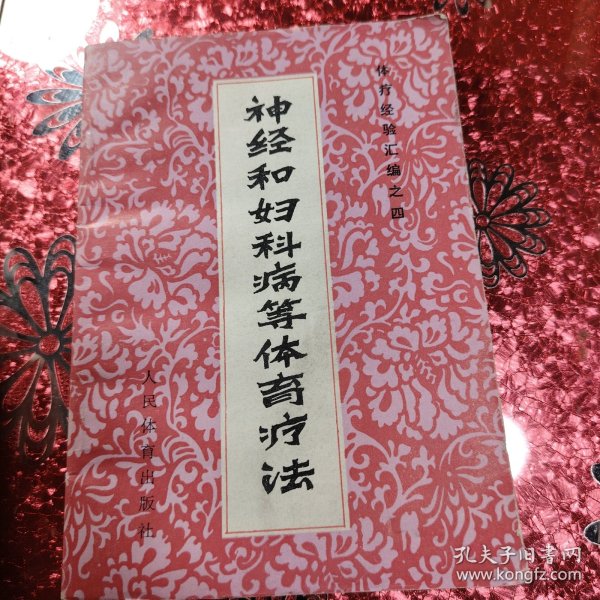 体疗经验汇编之四
神经和妇科病等体育疗法
人民体育出版社
孔夫子旧书网
www.kongfz.com